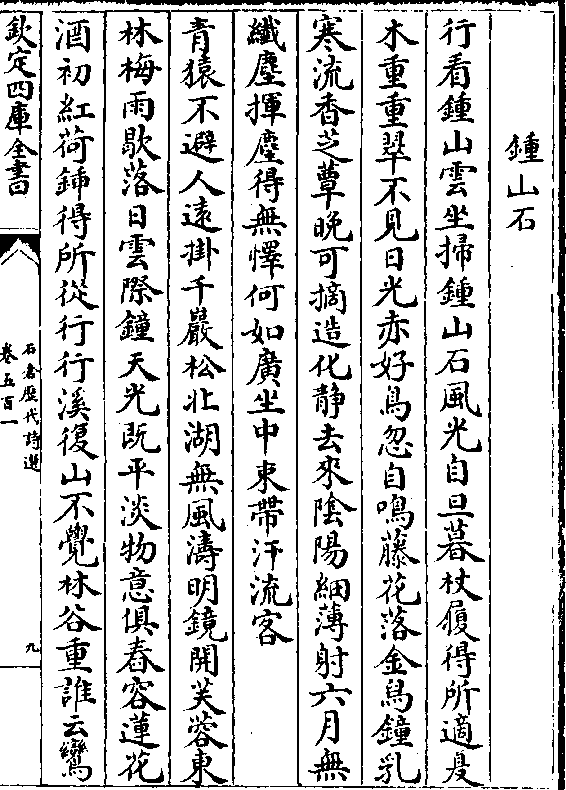 鍾山石
行看鍾山雲坐掃鍾山石風光自旦暮杖履得所適夏
木重重翠不見日光赤好鳥忽自鳴藤花落金烏鐘乳
寒流香芝蕈晚可摘造化静去來陰陽細薄射六月無
纖塵揮塵得無懌何如廣坐中束帶汗流客
青猿不避人遠掛千巖松北湖無風濤明鏡開芙蓉東
林梅雨歇落日雲際鐘天光既平淡物意俱舂容蓮花
酒初紅荷鍤得所從行行溪復山不覺林谷重誰云鸞
欽定四庫全書
石倉歷代詩選
卷五百一
九